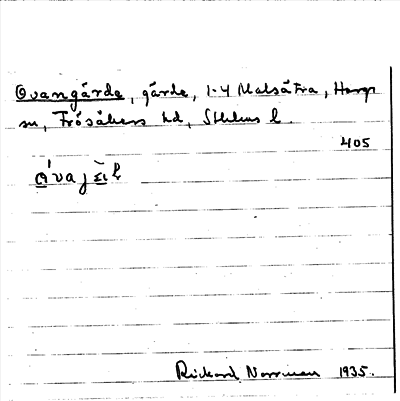 Ovangärde, gärde, 1-4 Malsätra, Hargs
sn, Frösåkers hd, Sthlms l.
405
Richard Norrman 1935.